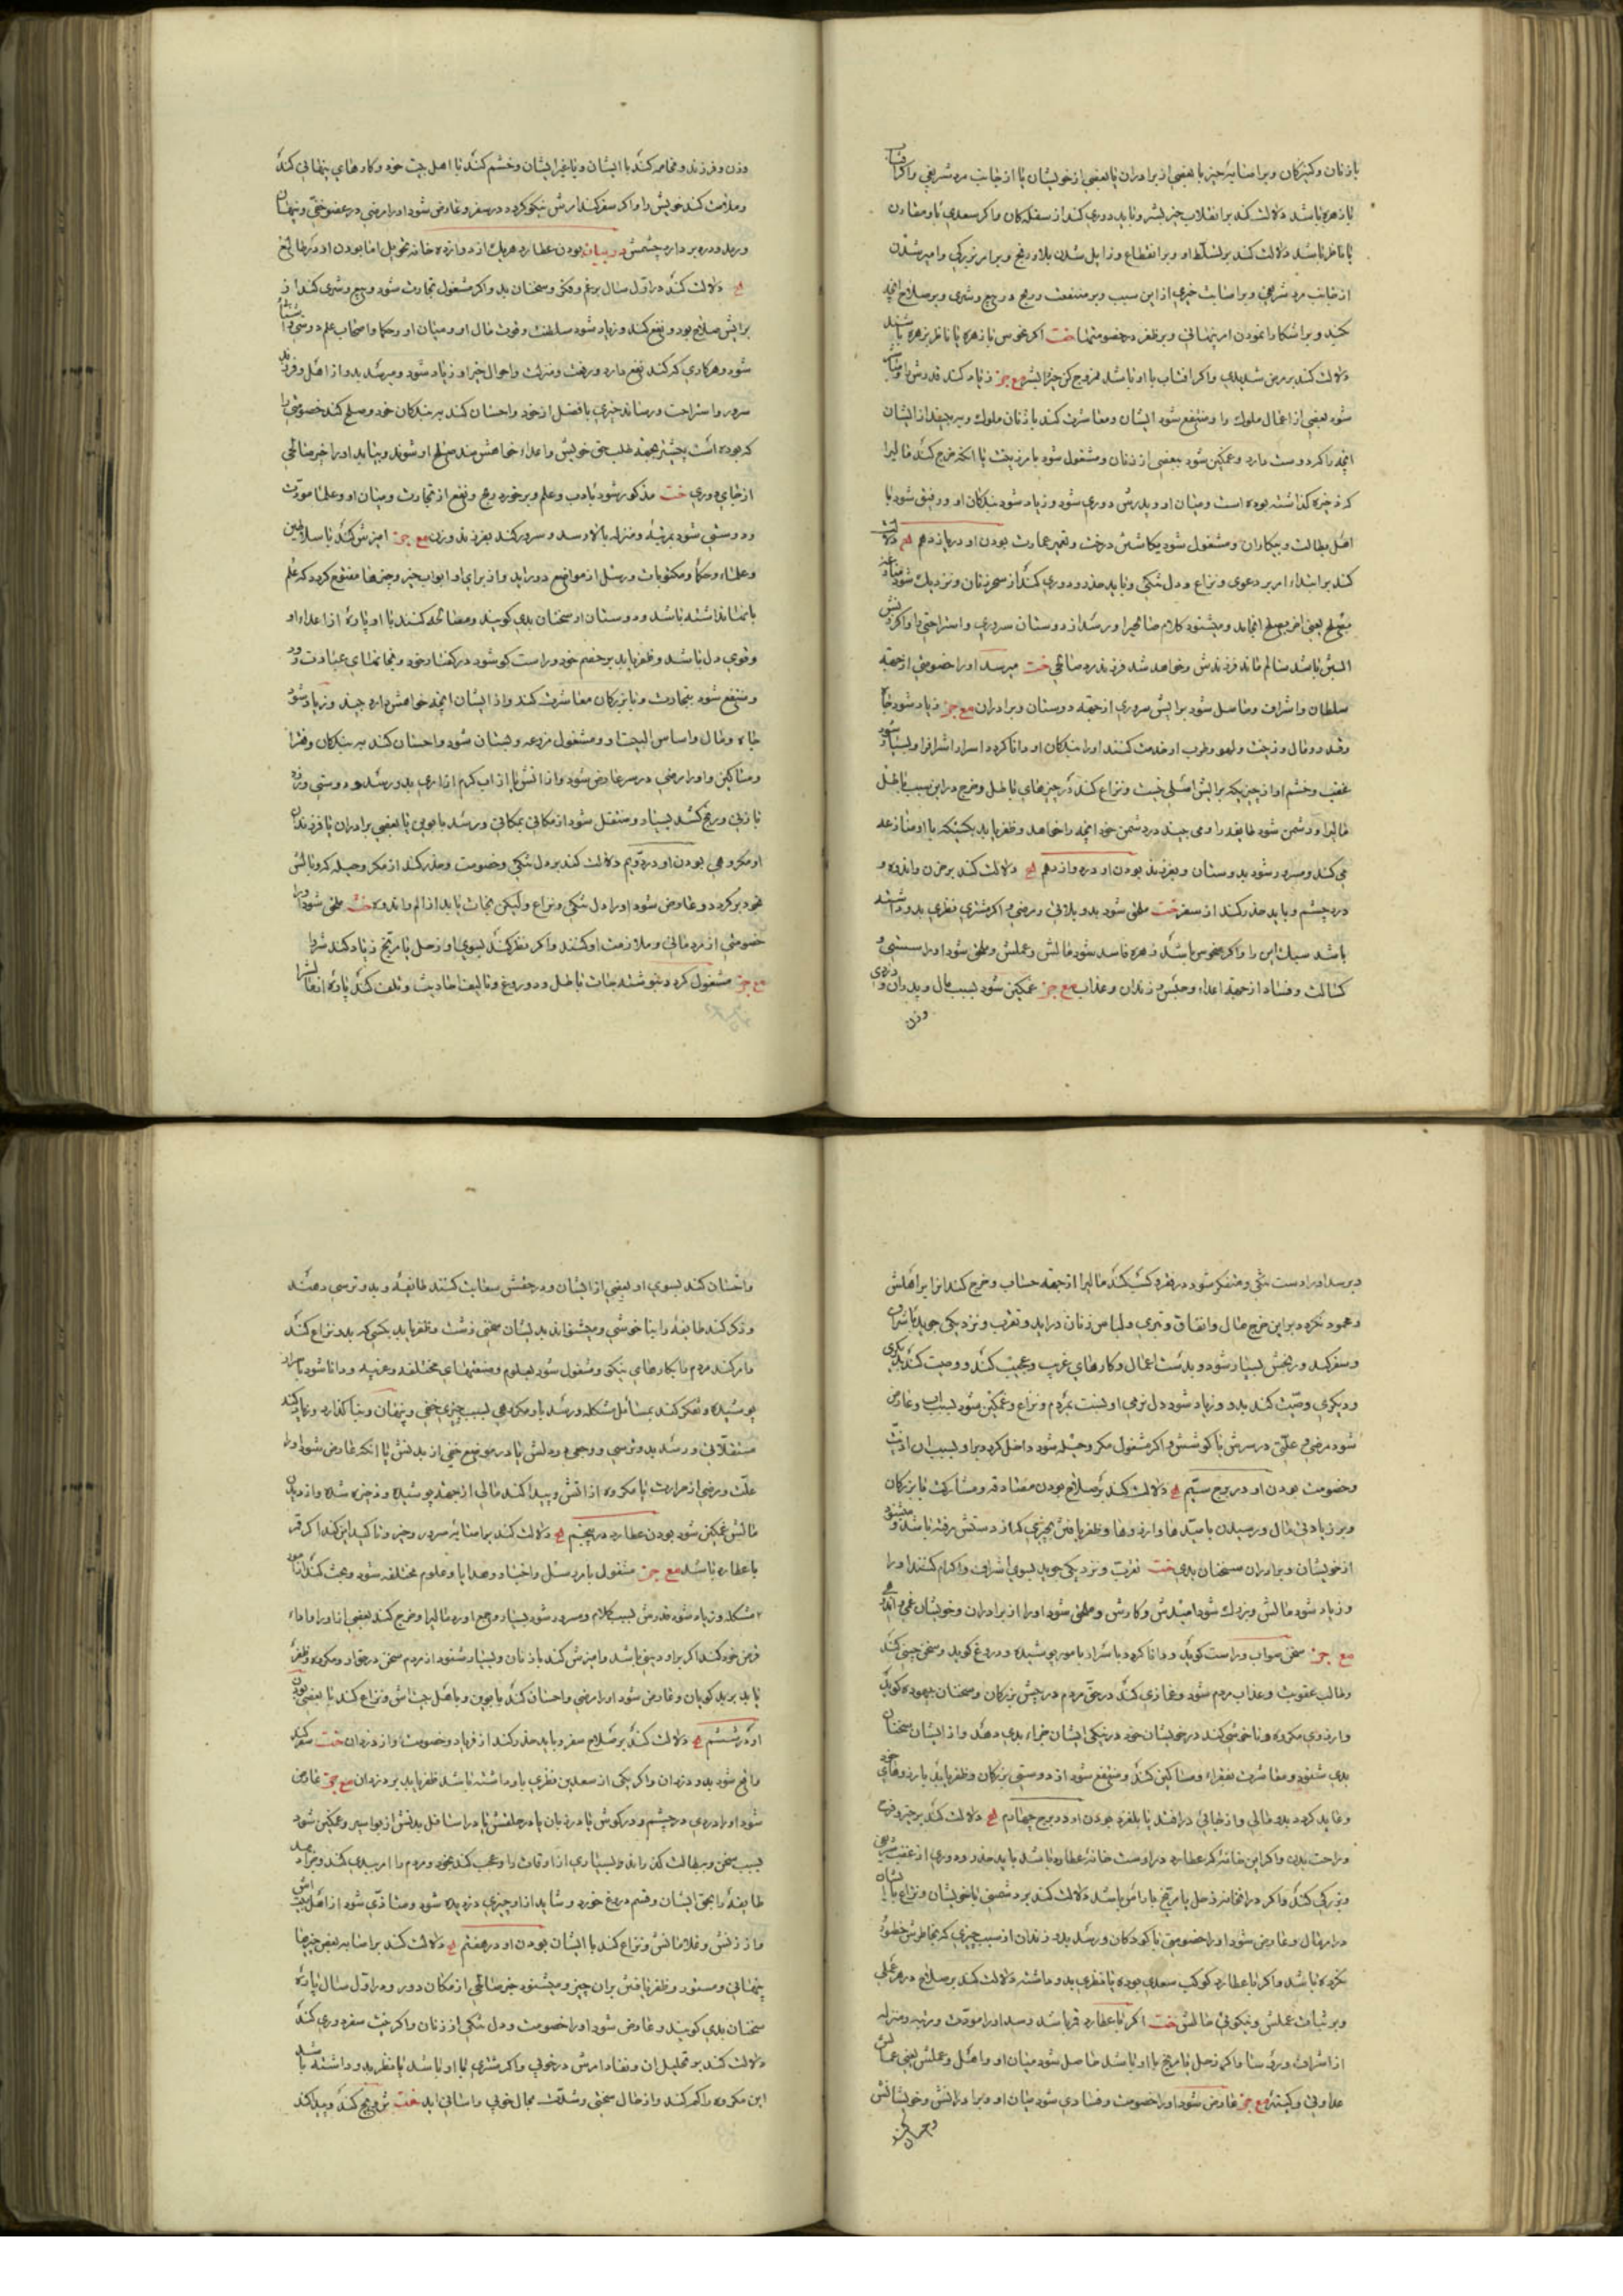 با زنان و کنیزکان و بر اصابه چیز با بعضی از برادران یا بعضی از خویشان یا از جانب مرد شریفی و اکر
با زهره باشد دلالت کند بر انقلاب خیر بشر و باید دوری کند از سفلکان و اکر سعدی با و مقارن
یا ناظر باشد دلالت کند بر تسلط او و بر انقطاع و زایل شدن بلا و رنج و بر امر بزرکی و امیر شدن
از جانب مرد شریفی و بر اصابت خیری از این سبب و بر منفعت و ربح در بیع و شری و بر صلاح انچه
کند و بر اشکارا نمودن امر پنهانی و بر ظفر در خصومتها تحت اکر نحوس با زهره یا ناظر بزهره باشند
دلالت کند بر مرض شدید و اکر افتاب با او باشد ممزوج کن خیر را بشر مع جز زیاد کند قدرش
شود بعضی از اعمال ملوک را و منتفع شود از ایشان و معاشرت کند با زنان ملوک و برچیند از ایشان
انچه را که دوست دارد و غمکین شود ببعضی از زنان و مشغول شود بامر زینت یا انکه خرج کند مالیرا
که ذخیره کذاشته بوده است و میان او و پدرش دوری شود و زیاد شود بندکان او و رفیق شود با
اهل بطالت و بیکاران و مشغول شود بکاشتن درخت و تعمیر عمارت بودن او در یازدهم لح دلالت
کند بر ابتداء امر بر دعوی و نزاع و دل تنکی و باید حذر و دوری کند از سحر زنان و نزدیک شود
بصلح یعنی اخر بصلح انجامد و میشنود کلام صالحی را و رسد از دوستان سروری و استراحتی را و اکر زنش
ابستن باشد سالم ماند فرزندش و خواهد شد فرزند مرد صالحی تحت میرسد او را خصومتی از جهة
سلطان و اشراف و حاصل شود برایش سروری از جهة دوستان و برادران مع جز زیاد شود جاه
و قدر و مال و زینت و لهو و طرب او خدمت کنند او را بندکان او و دانا کردد اسرار اشراف را و بسیار شود
غضب و خشم او از چیزیکه برایش اصلی نیست و نزاع کند در چیزهای باطل و خرج در این سبب باطل
مالیرا و دشمن شود طایفه را و می بیند در دشمن خود انچه را خواهد و ظفر یابد بکسیکه با او منازعه
می کند و مسرور شود بدوستان و بفرزند بودن او در دوازدهم لح دلالت کند بر حزن و اندوه و
درد چشم و باید حذر کند از سفر تحت ملحق شود بدو بلائی و مرضی و اکر مشتری نظری بدو داشته
باشد سبک این را و اکر نحوس باشد زهره فاسد شود مالش و عملش و ملحق شود او را سستی و
کسالت و فساد از جهة اعداء و حبس و زندان و عذاب مع جز غمکین شود بسبب مال و پدران و
وزن
وزن و فرزند و مخاصمه کند با ایشان و با غیر ایشان و خشم کند با اهل بیت خود و کارهای پنهانی کند
و ملامت کند خویش را و اکر سفر کند امرش نیکو کردد در سفر و عارض شود او را مرضی در عضو خفی و پنهان
و رمد و درد بر دارد چشمش در بیان بودن عطارد هریک از دوازده خانه تحویل اما بودن او در طالع
لح دلالت کند در اول سال بر غم و فکر و سخنان بد و اکر مشغول تجارت شود و بیع و شری کند از
برایش صالح بود و نفع کند و زیاد شود سلطنت و قوت مال او و میان او و حکما و اصحاب علم دوستی
شود و هر کاری که کند نفع دارد و رفعت و منزلت و احوال خیر او زیاد شود و میرسد بدو از اهل و فرزند
سرور و استراحت و رساند خیری یا فضل از خود و احسان کند بر بندکان خود و صلح کند خصومتی را
که بوده است پیشتر بجهة طلب حق خویش و اعداء خواهشمند صلح او شوند و بیاید او را خبر صالحی
از جای دوری تحت مذکور شود بادب و علم و برخورد ربح و نفع از تجارت و میان او و علما مودت
و دوستی شود بمرتبه و منزله بالا رسد و سرور کند بفرزند و زن مع جز امیزش کند با سلاطین
و علماء و حکما و مکتوبات و رسل از مواضع دور اید و از برای او ابواب خیر و چیزها مفتوح کردد که علم
بانها نداشته باشد و دوستان او سخنان بدی کویند و مصالحه کنند با او پاره از اعداء او
و قوی دل باشد و ظفر یابد بر خصم خود و راست کو شود در کفتار خود و بجا نماید عبادت
و منتفع شود بتجارت و با بزرکان معاشرت کند و از ایشان انچه خواهش دارد بیند و زیاد شود
جاه و مال و اساس البیت او و مشغول مزرعه و بستان شود و احسان کند بر بندکان و فقرا
و مساکین و او را مرضی در سر عارض شود و از اتش یا از اب کرم ازاری بدو رسد و دوستی ورزد
با زنی و رنج کشد بسیار و منتقل شود از مکانی بمکانی و رسد با بوین یا بعضی برادران یا فرزندان
او مکروهی بودن او در دویم دلالت کند بر دل تنکی و خصومت و حذر کند از مکر و حیله که وبالش
بخود برکردد و عارض شود او را دل تنکی و نزاع ولیکن نجات یابد از الم و اندوه تحت ملحق شود او را
خصومتی از مرد مالی و ملازمت او کنند و اکر نظر کند بسوی او زحل یا مریخ زیاد کند شر را
مع جز مشغول کردد بنوشتجات باطل و دروغ و تالیف احادیث و تلف کند پاره
دبرسد او را دست تنکی و متفکر شود در نفره کسب کند مالیرا از جهة حساب و خرج کند انرا بر اهلش
وعمود نکردد بر این خرج مال و انفاق و تبری و لباس زنان دراید و تقرب و نزدیکی جوید
و سفر کند و رنجش بسیار شود و بدست اعمال و کارهای غریب و عجیب کند و وصیت کند
و دیکری وصیت کند بدو و زیاد شود دل نرمی او نسبت بمردم و نزاع و غمکین شود بسبب اب و عارض
شود مرضی و علتی در سرش یا کوشش و اکر مشغول مکر و حیله شود داخل کردد بر او بسبب ان اذیت
و خصومت بودن او در برج سیم لح دلالت کند بر صلاح بودن مصادقه و مشارکت با بزرکان
و بر زیادتی مال و رسیدن بامیدها و ارزوها و ظفر یافتن بچیزی که از دستش رفته باشد و میشنود
از خویشان و برادران سخنان بدی تحت تقرب و نزدیکی جوید بسوی اشراف و اکرام کنند او را
و زیاد شود مالش و بزرک شود امیدش و کارش و ملحق شود او را از برادران و خویشان غمی و
مع جز سخن صواب و راست کوید و دانا کردد باسرار و امور پوشیده و دروغ کوید و سخن چینی کند
و طالب عقوبت و عذاب مردم شود و غمازی کند در حق مردم در پیش بزرکان و سخنان بیهوده کوید
و ارزوی مکروه و ناخوشی کند در خویشان خود در نیکی ایشان جزاء بدی دهند و از ایشان سخنان
بدی شنود و معاشرت بفقراء و مساکین کند و منتفع شود از دوستی بزرکان و ظفر یابد بارزوهای خود
و عاید کردد بدو مالی و از جائی در افتد یا بلغزد بودن او در برج چهارم لح دلالت کند بر خیر و فرح
و راحت بدن و اکر این خانه که عطارد در اوست خانه عطارد باشد باید حذر و دوری از غضب
و بزرکی کند و اکر در انخانه زحل یا مریخ با راس باشد دلالت کند بر دشمنی با خویشان و نزاع با ایشان
در امر مال و عارض شود او را خصومتی با کودکان و رسد بدو زندان از سبب چیزی که بخاطرش خطور
نکرده باشد و اکر با عطارد کوکب سعدی بوده یا نظری بدو داشته دلالت کند بر صلاح در هر عملی
و بر ثبات عملش و نیکوئی مالش تحت اکر با عطارد قمر باشد رسد او را مودت و رتبه و منزله
از اشراف و رؤسا و اکر زحل یا مریخ با او باشد حاصل شود میان او و اهل و عملش یعنی عمالش
عداوتی و کینه مع جز عارض شود او را خصومت و فسادی شود میان او و برادرانش و خویشانش
و احسان کند
و احسان کند بسوی او بعضی از ایشان و در حقش سعایت کنند طایفه و بدو ترسی دهند
و ذکر کند طایفه را بناخوشی و میشنواند بدیشان سخنی زشت و ظفر یابد بکسی که بدو نزاع کند
و امر کند مردم را بکارهای نیکو و مشغول شود بعلوم و صنعتهای مختلفه و غریبه و دانا شود باسرار
پوشیده و تفکر کند بمسائل مشکله و رسد باو مکروهی بسبب چیزی خفی و پنهان و بنا کذارد و نهایه کند
مستقلاتی و رسد بدو ترسی و وجعی در دلش یا در موضع خفی از بدنش یا انکه عارض شود او را
علت و مرضی از حرارت یا مکروه از اتش و پیدا کند مالی از جهة پوشیده و ذخیره شده و از دیدن
مالش غمکین شود بودن عطارد در پنجم لح دلالت کند بر اصابه سرور و خیر و تاکید این کند اکر قمر
با عطارد باشد مع جز مشغول بامر رسل و اخبار و هدایا و علوم مختلفه شود و بحث کند از امور
مشکله و زیاد شود قدرش بسبب کلام و مسرور شود بسیار و جمع اورد مالیرا و خرج کند بعضی انرا و ادا
قرض خود کند اکر بر او دینی باشد و امیزش کند با زنان و بسیار شنود از مردم سخن در حق او و مکروه و ظفر
یابد بر بدکویان و عارض شود او را مرضی و احسان کند با بوین و با اهل بیتش و نزاع کند با بعضی بودن
او در ششم لح دلالت کند بر صلاح سفر و باید حذر کند از فریاد و خصومت و از دزدان تحت سفر کند
واقع شود بدو دزدان و اکر یکی از سعدین نظری باو داشته باشد ظفر یابد بر دزدان مع جز عارض
شود او را دردی در چشم و در کوش یا در زبان یا در حلقش یا در اسافل بدنش از بواسیر و غمکین شود
بسبب سخن و بطالت کذراند بسیاری از اوقات را و عجب کند بخود و مردم را امر ببدی کند و
طایفه را بحق ایشان و قسم دروغ خورد و شاید از او چیزی دزدیده شود و متاذی شود از اهل بیتش
و از زنش و غلامانش و نزاع کند با ایشان بودن او در هفتم لح دلالت کند بر اصابه بعض چیزها
پنهانی و مستور و ظفر یافتن بران چیز و میشنود خبر صالحی از مکان دور و در اول سال پاره
سخنان بدی کویند و عارض شود او را خصومت و دل تنکی از زنان و اکر نیت سفر دوری کند
دلالت کند بر تحلیل ان و نفاذ امرش در خوبی و اکر مشتری با او باشد یا نظر بدو داشته باشد
این مکروه را کم کند و از حال سختی و شدت بحال خوبی و اسانی اید تحت تزویج کند و پیدا کند